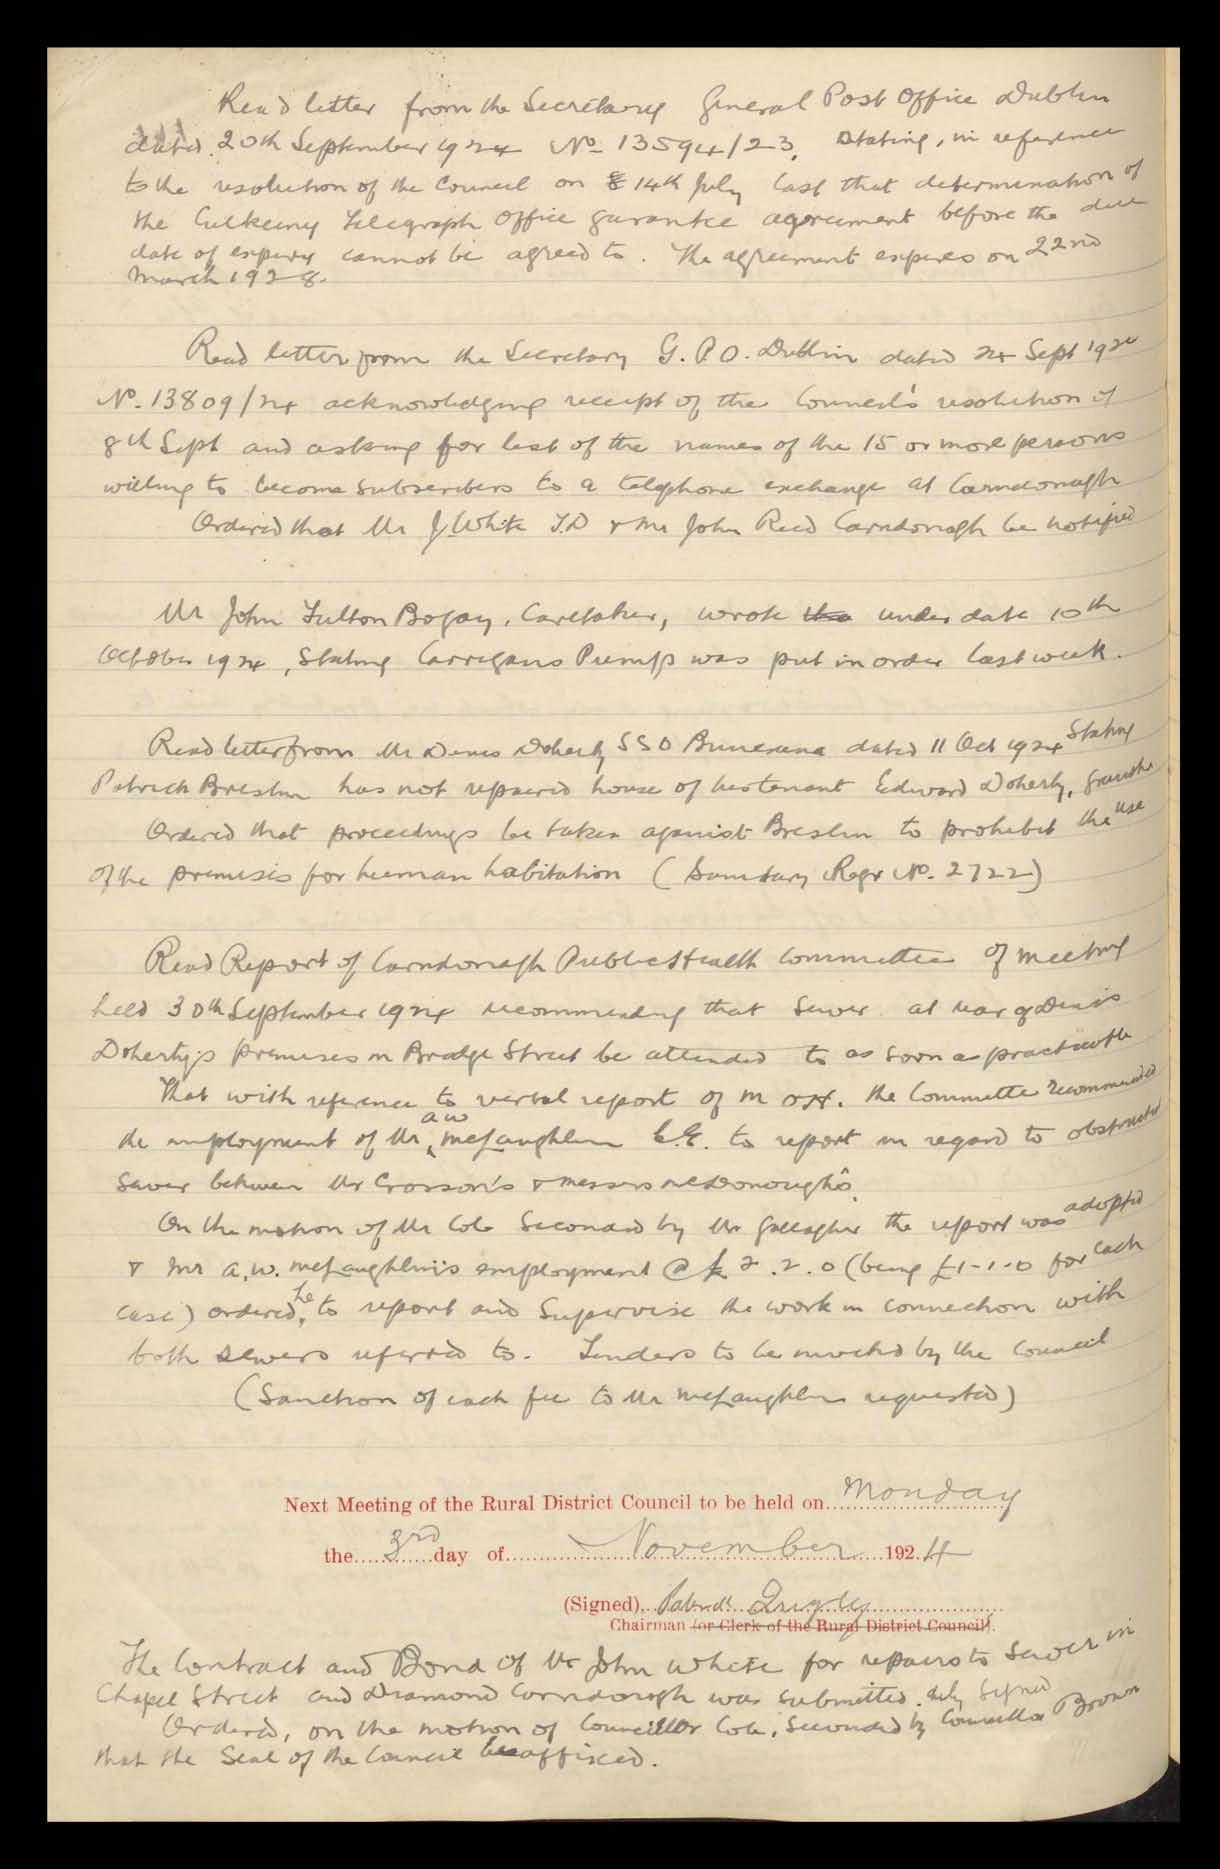 Read letter from the Secretary General Post Office Dublin
dated 20th September 1924 No. 13594/23, stating, in reference
to the resolution of the Council on 14th July last that determination of
the Culkeeny Telegraph Office guarantee agreement before the due
date of expiry cannot be agreed to. The agreement expires on 22nd
March 1928.
Read letter from the Secretary G.P.O. Dublin dated 24 Sept 1924
No. 13809/24 acknowledging receipt of the Council's resolution of
8th Sept and asking for list of the names of the 15 or more persons
willing to become subscribers to a telephone exchange at Carndonagh
Ordered that Mr J. White T.D & Mr John Reid Carndonagh be notified
Mr John Fulton Bogay, Caretaker, wrote the under date 10th
October 1924, stating Carrigans Pump was put in order last week.
Read letter from Mr Denis Doherty SSO Buncrana dated 11 Oct 1924 Stating
Patrick Breslin has not repaired house of his tenant Edward Doherty,
Ordered that proceedings be taken against Breslin to prohibit the use
of the premises for human habitation (Sanitary Regr No. 2722)
Read Report of Carndonagh Public Health Committee of meeting
held 30th September 1924 recommending that sewer at rear of Denis
Doherty's premises in Bridge Street be attended to as soon as practicable
That with reference to verbal report of M OH. the Committee recommended
the employment of Mr A W McLaughlin C.E. to report in regard to obstructed
Sewer between Mr Crosson's & Messrs McDonough's.
On the motion of Mr Cole Seconded by Mr Gallagher the report was adopted
& Mr A.W. McLaughlin's employment @ £2.2.0 (being £1-1-0 for each
case) ordered, he to report and supervise the work in connection with
both sewers referred to. Tenders to be invited by the Council
(Sanction of each fee to Mr McLaughlin requested)
Next Meeting of the Rural District Council to be held on Monday
the 3rd day of November 1924
(Signed) Patrick Quigley
Chairman (or Clerk of the Rural District Council).
The Contract and Bond of Mr John White for repairs to sewer in
Chapel Street and Diamond Carndonagh was submitted duly signed
Ordered, on the motion of Councillor Cole, seconded by Councillor Brown
that the Seal of the Council be affixed.